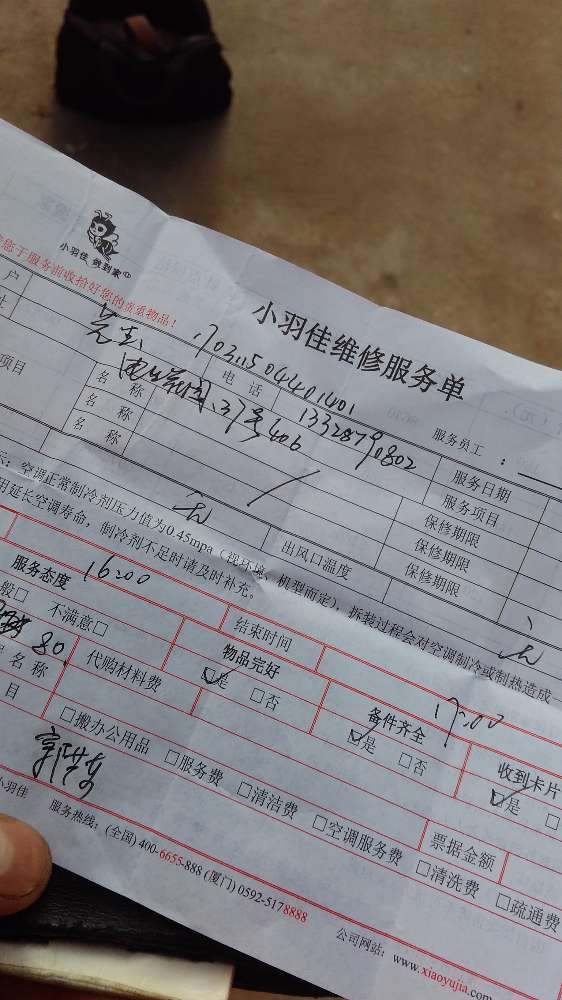 小羽佳 做到家
您于服务前收拾好您的贵重物品！
小羽佳维修服务单
服务员工：
户 电话 13328790802 服务日期
址 37号406 服务项目
项目 名称 保修期限
名称 保修期限
名称 保修期限
无 出风口温度 无
示：空调正常制冷剂压力值为0.45mpa（视环境、机型而定），拆装过程会对空调制冷或制热造成
用延长空调寿命，制冷剂不足时请及时补充。
16:00 结束时间 17:00
服务态度 物品完好 备件齐全 收到卡片
般□ 不满意□ ☑是 □否 ☑是 □否 ☑是 □
80. 代购材料费
名称
目 □搬办公用品 □服务费 □清洁费 □空调服务费 票据金额 □清洗费 □疏通费
小羽佳 服务热线：(全国) 400-6655-888 (厦门) 0592-5178888
公司网站：www.xiaoyujia.com